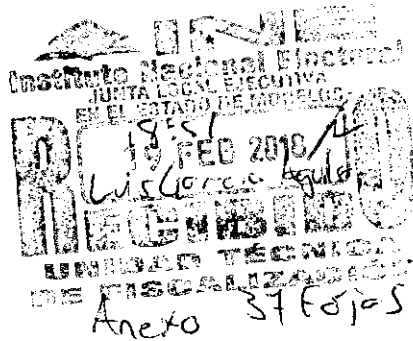 INE
Instituto Nacional Electoral
JUNTA LOCAL EJECUTIVA
EN EL ESTADO DE MORELOS
18:51
19 FEB 2018
Luis Aguila
RECIBIDO
UNIDAD TÉCNICA
DE FISCALIZACIÓN
Anexo 37 fojas